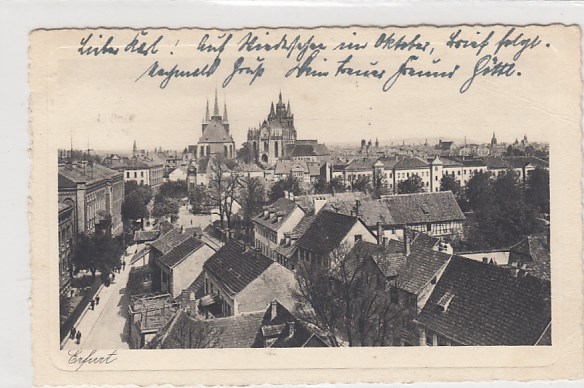 Lieber Karl! Auf Wiedersehen im Oktober, Brief folgt.
Nochmals Gruß Dein treuer Freund Göttl.
Erfurt